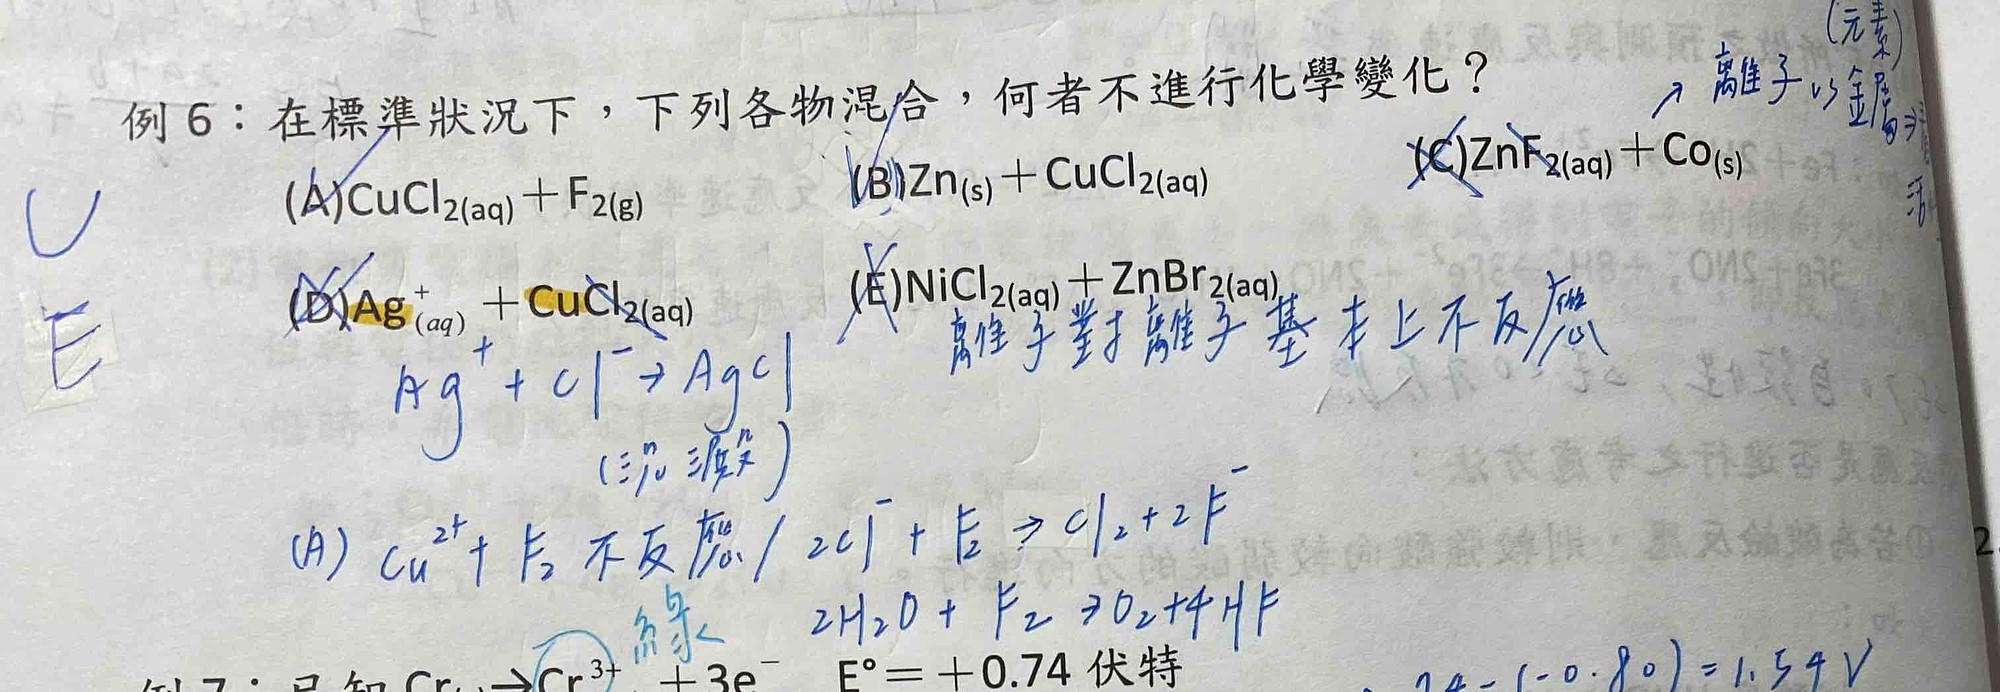 (元素)
離子 vs 金屬
例 6：在標準狀況下，下列各物混合，何者不進行化學變化？
(A)CuCl₂(aq)＋F₂(g) (B)Zn(s)＋CuCl₂(aq) (C)ZnF₂(aq)＋Co(s)
(D)Ag⁺(aq) ＋CuCl₂(aq) (E)NiCl₂(aq)＋ZnBr₂(aq)
C
E
離子對離子基本上不反應
Ag⁺ + Cl⁻ → AgCl
(沉澱)
(A) Cu²⁺ + F₂ 不反應 / 2Cl⁻ + F₂ → Cl₂ + 2F⁻
2H₂O + F₂ → O₂ + 4HF
綠
例 7：已知 Cr → Cr³⁺ ＋3e⁻ E°＝＋0.74 伏特
74 - (-0.80) = 1.54 V